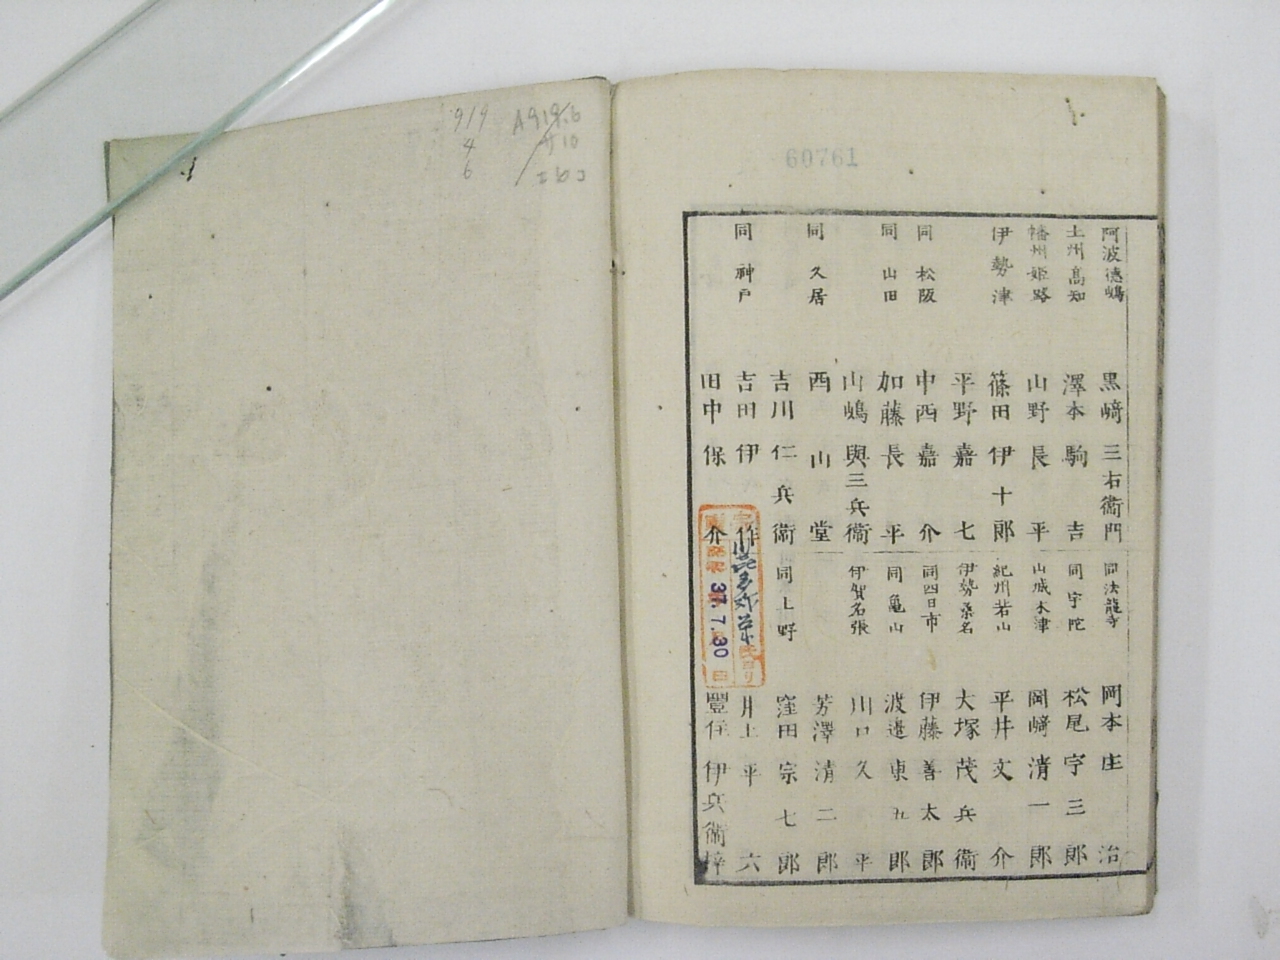 919
4
6
A919.6
サ10
コわコ
60761
阿波德嶋 黒﨑三右衞門
土州高知 澤本駒吉
播州姫路 山野長平
伊勢津 篠田伊十郎
平野嘉七
同松阪 中西嘉介
同山田 加藤長平
山嶋與三兵衞
同久居 西山堂
吉川仁兵衞
同神戸 吉田伊作
田中保介
同法龍寺 岡本庄治
同宇陀 松尾宇三郎
山城木津 岡﨑清一郎
紀州若山 平井文介
伊勢桑名 大塚茂兵衞
同四日市 伊藤善太郎
同亀山 波邉東五郎
伊賀名張 川口久平
芳澤清二郎
同上野 窪田宗七郎
井上平六
豐住伊兵衞梓
37.7.30